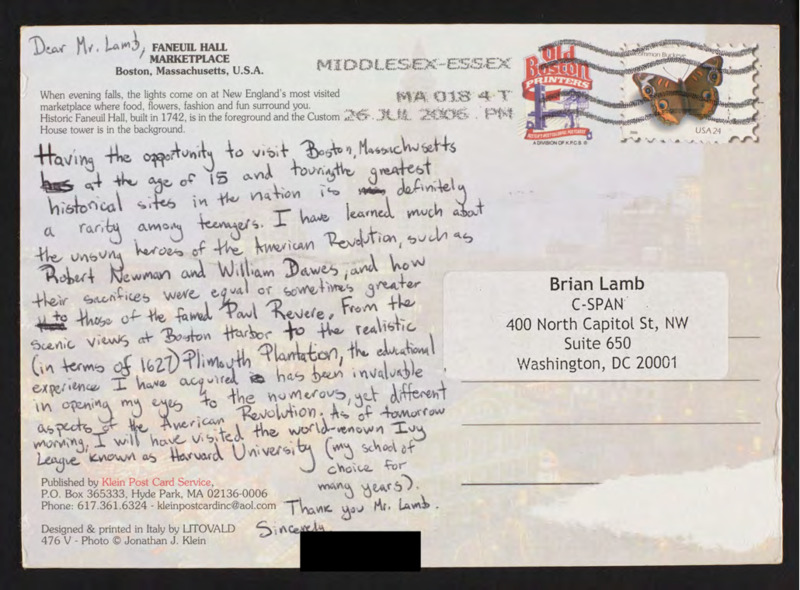 Dear Mr. Lamb,
FANEUIL HALL
MARKETPLACE
Boston, Massachusetts, U.S.A.
When evening falls, the lights come on at New England's most visited
marketplace where food, flowers, fashion and fun surround you.
Historic Faneuil Hall, built in 1742, is in the foreground and the Custom
House tower is in the background.
MIDDLESEX-ESSEX
MA 018 4 T
26 JUL 2006 PM
Old
Boston
PRINTERS
A DIVISION OF K.P.C.S.
Common Buckeye
USA 24
Having the opportunity to visit Boston, Massachusetts
at the age of 15 and touring the greatest
historical sites in the nation is definitely
a rarity among teenagers. I have learned much about
the unsung heroes of the American Revolution, such as
Robert Newman and William Dawes, and how
their sacrifices were equal or sometimes greater
to those of the famed Paul Revere. From the
scenic views at Boston Harbor to the realistic
(in terms of 1627) Plimouth Plantation, the educational
experience I have acquired has been invaluable
in opening my eyes to the numerous, yet different
aspects of the American Revolution. As of tomorrow
morning, I will have visited the world-renown Ivy
League known as Harvard University (my school of
choice for
many years).
Thank you Mr. Lamb.
Sincerely,
Brian Lamb
C-SPAN
400 North Capitol St, NW
Suite 650
Washington, DC 20001
Published by Klein Post Card Service,
P.O. Box 365333, Hyde Park, MA 02136-0006
Phone: 617.361.6324 - kleinpostcardinc@aol.com
Designed & printed in Italy by LITOVALD
476 V - Photo © Jonathan J. Klein